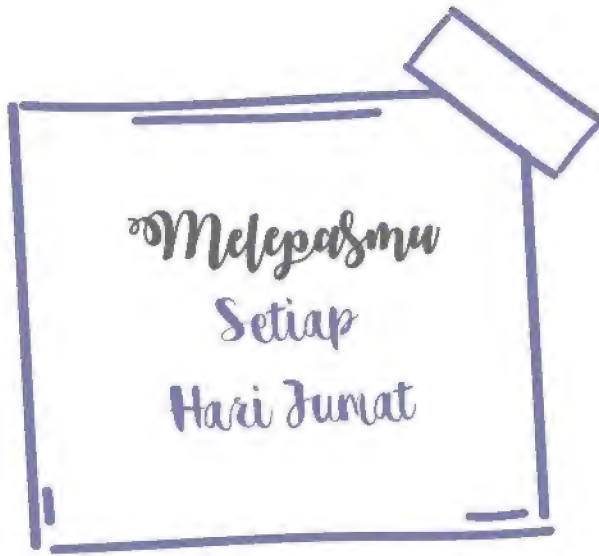 Melepasmu
Setiap
Hari Jumat